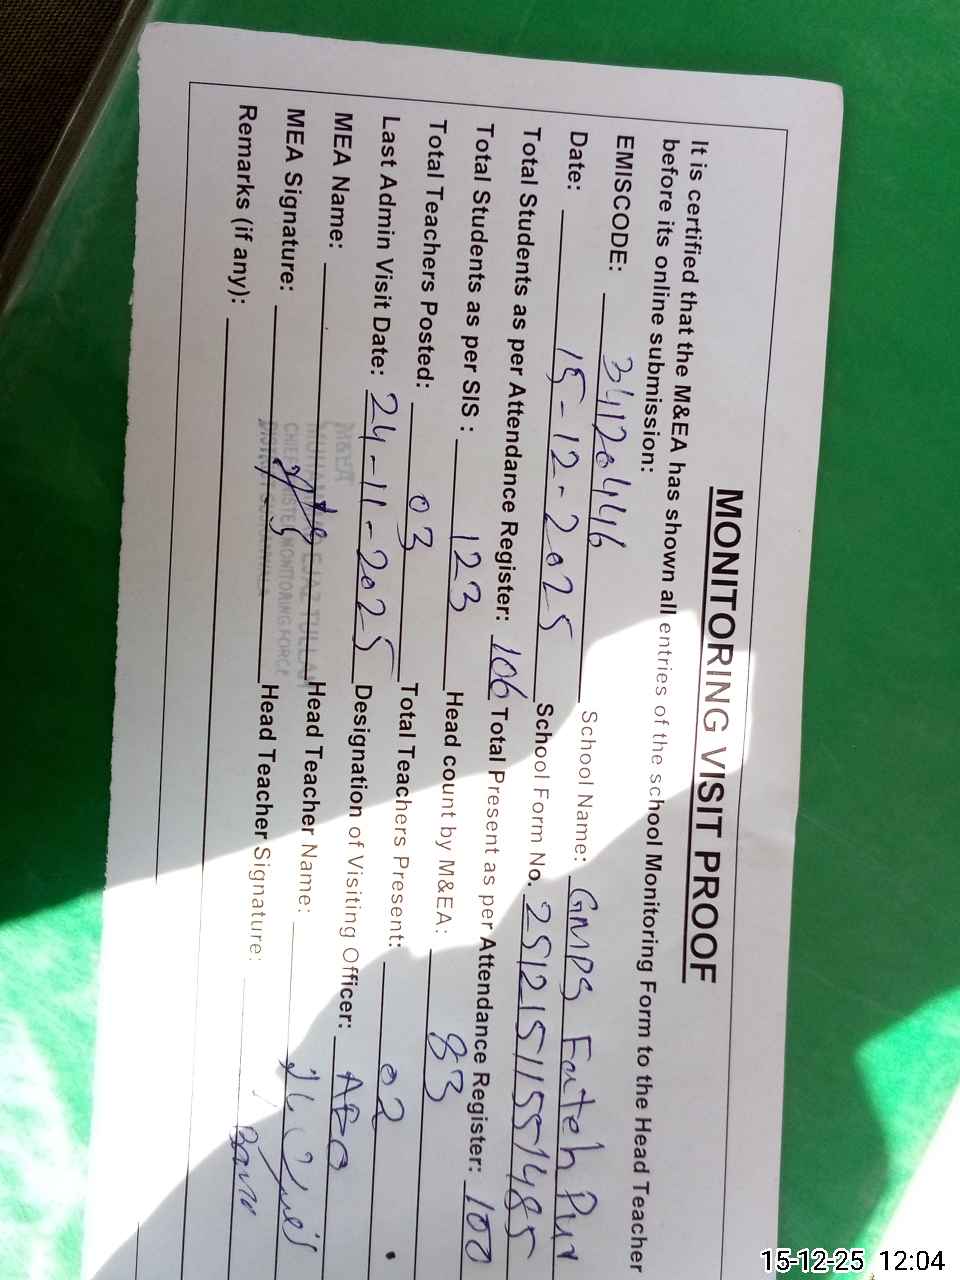 MONITORING VISIT PROOF
It is certified that the M&EA has shown all entries of the school Monitoring Form to the Head Teacher
before its online submission:
EMISCODE: 34120446 School Name: GMPS Fateh Pur
Date: 15-12-2025 School Form No. 251215115571485
Total Students as per Attendance Register: 106 Total Present as per Attendance Register: 100
Total Students as per SIS : 123 Head count by M&EA: 83
Total Teachers Posted: 03 Total Teachers Present: 02
Last Admin Visit Date: 24-11-2025 Designation of Visiting Officer: AEO
MEA Name: Head Teacher Name:
MEA Signature: Head Teacher Signature:
Remarks (if any):
M&EA
EJAZ TULLAH
CHIEF MINISTER MONITORING FORCE
DISTRICT GUJRANWALA
15-12-25 12:04